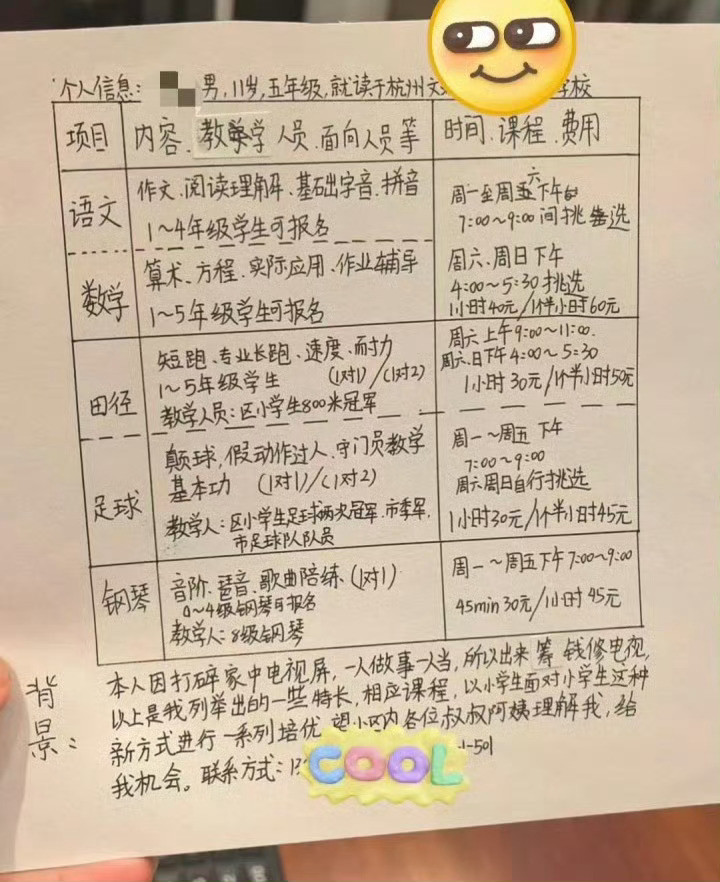 个人信息: 男, 11岁, 五年级, 就读于杭州文 学校
项目 内容、教学人员、面向人员等 时间、课程、费用
语文 作文、阅读理解、基础字音、拼音
1~4年级学生可报名
周一至周六下午
7:00~9:00间挑选
数学 算术、方程、实际应用、作业辅导
1~5年级学生可报名
周六、周日下午
4:00~5:30挑选
1小时40元/1个半小时60元
田径 短跑、专业长跑、速度、耐力
1~5年级学生 (1对1)/(1对2)
教学人员:区小学生800米冠军
周六上午9:00~11:00.
周六.日下午4:00~5:30
1小时30元/1个半小时50元
足球 颠球,假动作过人.守门员教学
基本功 (1对1)/(1对2)
教学人:区小学生足球两次冠军.市季军.
市足球队队员
周一~周五下午
7:00~9:00
周六周日自行挑选
1小时30元/1个半小时45元
钢琴 音阶、琶音、歌曲陪练、(1对1)
0~4级钢琴可报名
教学人:8级钢琴
周一~周五下午7:00~9:00
45min30元/1小时45元
背景:
本人因打碎家中电视屏,一人做事一人当,所以出来筹钱修电视,
以上是我列举出的一些特长,相应课程,以小学生面对小学生这种
新方式进行一系列培优.望小区内各位叔叔阿姨理解我,给
我机会。联系方式:13 1-501
COOL